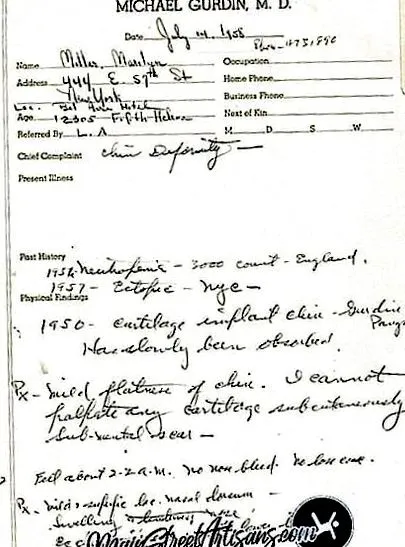 MICHAEL GURDIN, M. D.
Date July 14, 1958
Name Miller, Marilyn
Occupation
Address 444 E. 57th St
Home Phone
New York
Business Phone
Loc. Bel Air Hotel
Next of Kin
Age 12305 Fifth Helena
Referred By L. A
M D S W
Chief Complaint chin Deformity —
Present Illness
Past History
1956 Neutropenia - 3000 count - England.
1957 - Ectopic - NYC -
Physical Findings
1950 - cartilage implant chin - Gurdin
Has slowly been absorbed.
Px - mild flatness of chin. I cannot
palpate any cartilage subcutaneously
Sub-mental scar —
Fell about 2-2 a.m. No nose bleed. No
Px - mild nasal dorsum -
Swelling nose
MainStreetArtisans.com